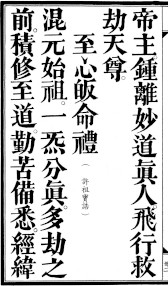 帝主鍾離妙道眞人。飛行救
劫天尊。
至心皈命禮
（許祖寶誥）
混元始祖。一炁分眞。多劫之
前。積修至道。勤苦備悉。經緯